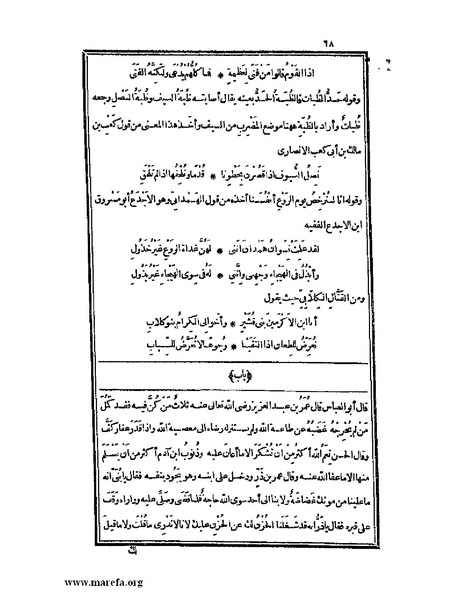 ٦٨
اذا القوم قالوا من فتى لعظيمة * فما كلهم يدعى ولكنه الفتى
وقوله حد الظبات فالظبة الحد بعينه يقال أصابته ظبة السيف وظبة النصل وجمعه
ظبات وأراد بالظبة ههنا موضع المضرب من السيف وأخذ هذا المعنى من قول كعب بن
مالك بن أبى كعب الانصارى
نصل السيوف اذا قصرن بخطونا * قدما ونلحقها اذا لم تلحق
وقوله انا لنرخص يوم الروع أنفسنا أخذه من قول الهمدانى وهو الاجدع أبو مسروق
ابن الاجدع الفقيه
لقد علمت نسوان همدان أننى * لهن غداة الروع غير خذول
وأبذل فى الهيجاء وجهى وأننى * له فى سوى الهيجاء غير بذول
ومن القتال الكلابى حيث يقول
أنا ابن الاكرمين بنى قشير * وأخوالى الكرام بنو كلاب
نعرض للطعان اذا التقينا * وجوها لا تعرض للسباب
﴿باب﴾
قال أبو العباس قال عمر بن عبد العزيز رضى الله تعالى عنه ثلاث من كن فيه فقد كمل
من لم يخرجه غضبه عن طاعة الله ولم يستنزله رضاه الى معصية الله واذا قدر عفا وكف
وقال الحسن نعم الله أكثر من أن تشكر الا ما أعان عليه وذنوب ابن آدم أكثر من أن يسلم
منها الا ما عفا الله عنه وقال عمر بن ذر ودخل على ابنه وهو يجود بنفسه فقال يا بنى انه
ما علينا من موتك غضاضة ولا بنا الى أحد سوى الله حاجة فلما قضى وصلى عليه وواراه وقف
على قبره فقال يا ذر انه قد شغلنا الحزن لك عن الحزن عليك لانا لا ندرى ما قلت ولا ما قيل
لك
www.marefa.org